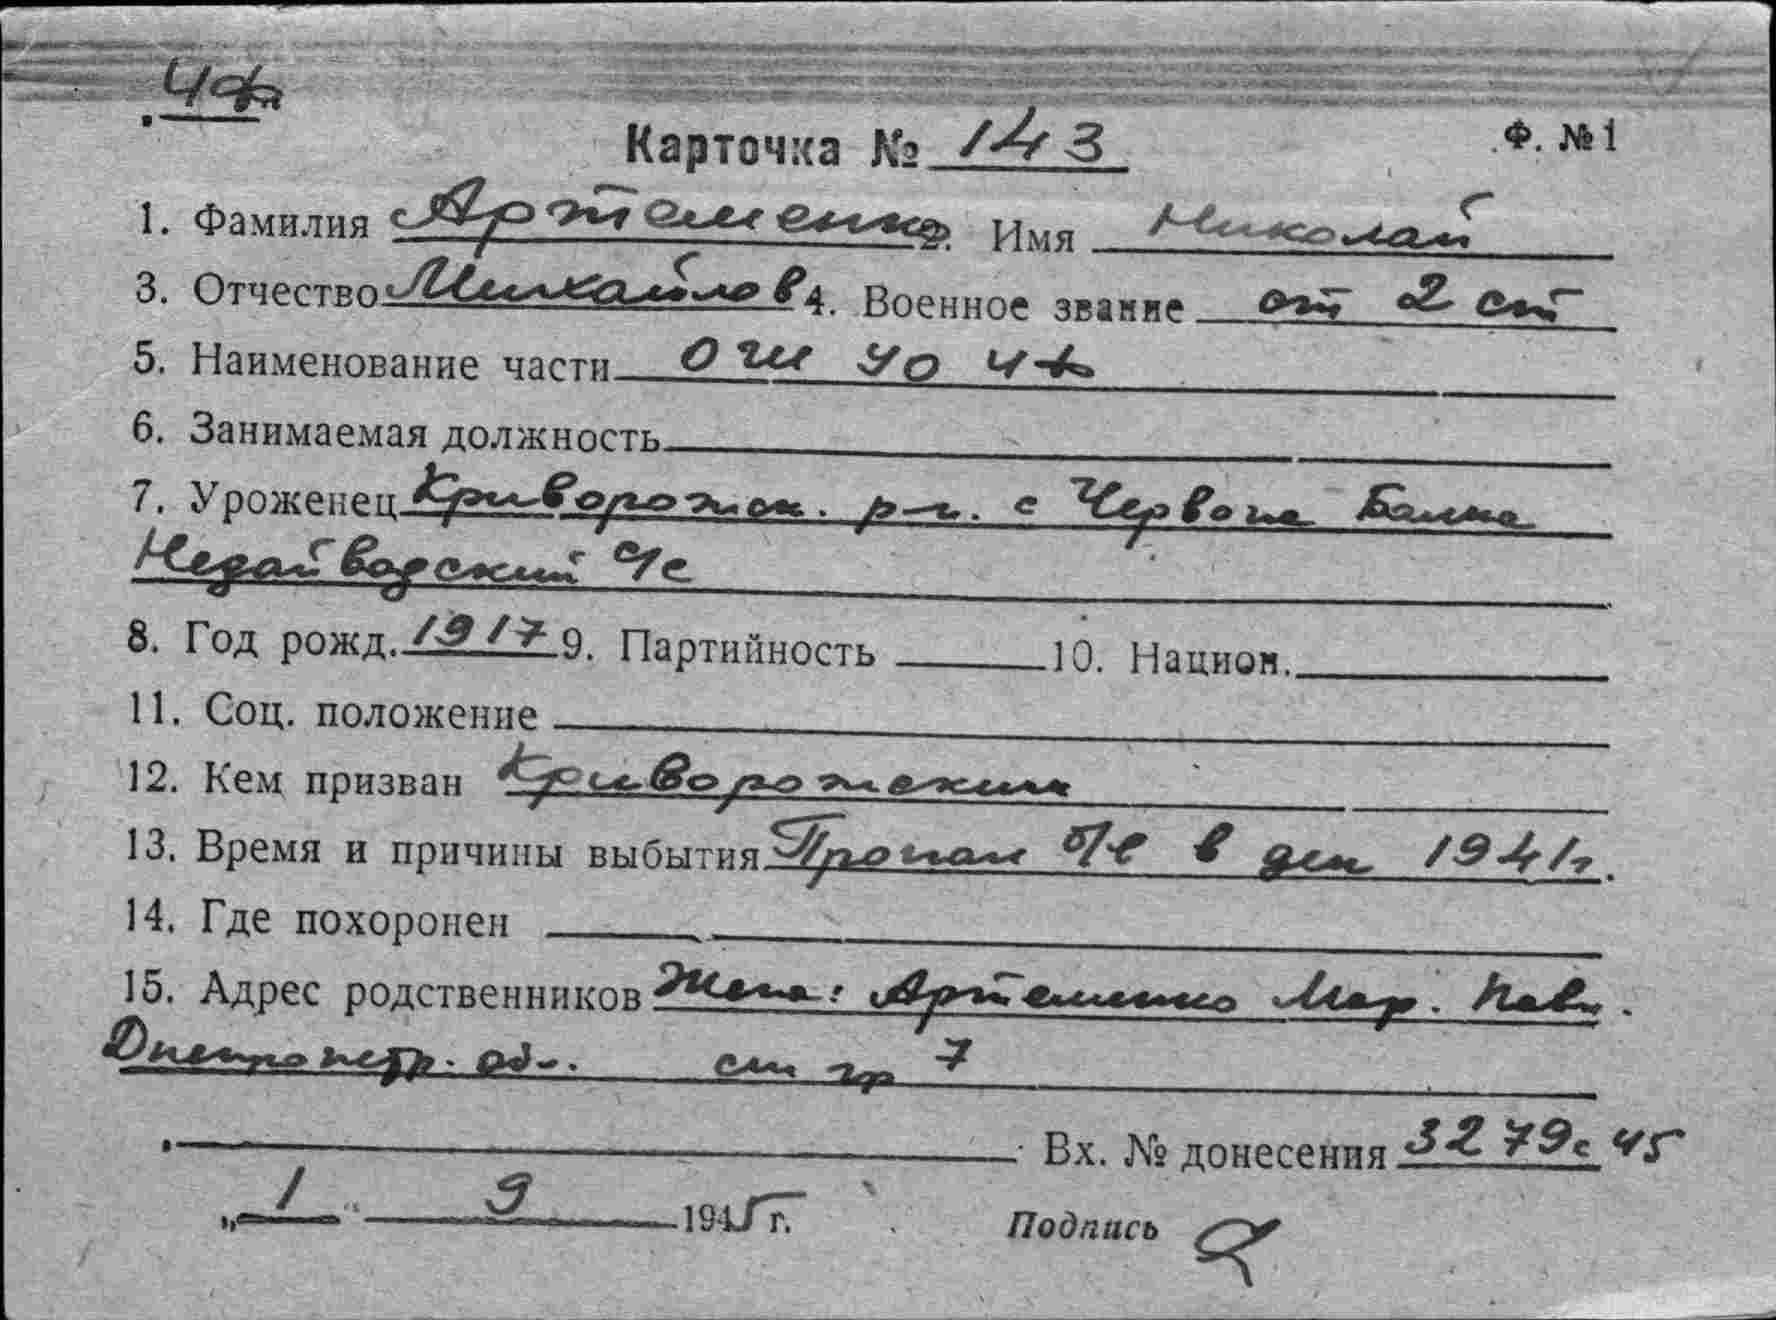 Чф
Карточка № 143 Ф. № 1
1. Фамилия Артеменко 2. Имя Николай
3. Отчество Михайлов 4. Военное звание ст 2 ст
5. Наименование части ОШ УО ЧФ
6. Занимаемая должность
7. Уроженец Криворожск. р-н. с Червона Балка
Недайводский с/с
8. Год рожд. 1917 9. Партийность 10. Национ.
11. Соц. положение
12. Кем призван Криворожским
13. Время и причины выбытия Пропал б/в в дек 1941г.
14. Где похоронен
15. Адрес родственников Жена: Артеменко Мар. Павл.
Днепропетр. об. см гр 7
Вх. № донесения 3279с 45
„1“ 9 1945 г. Подпись